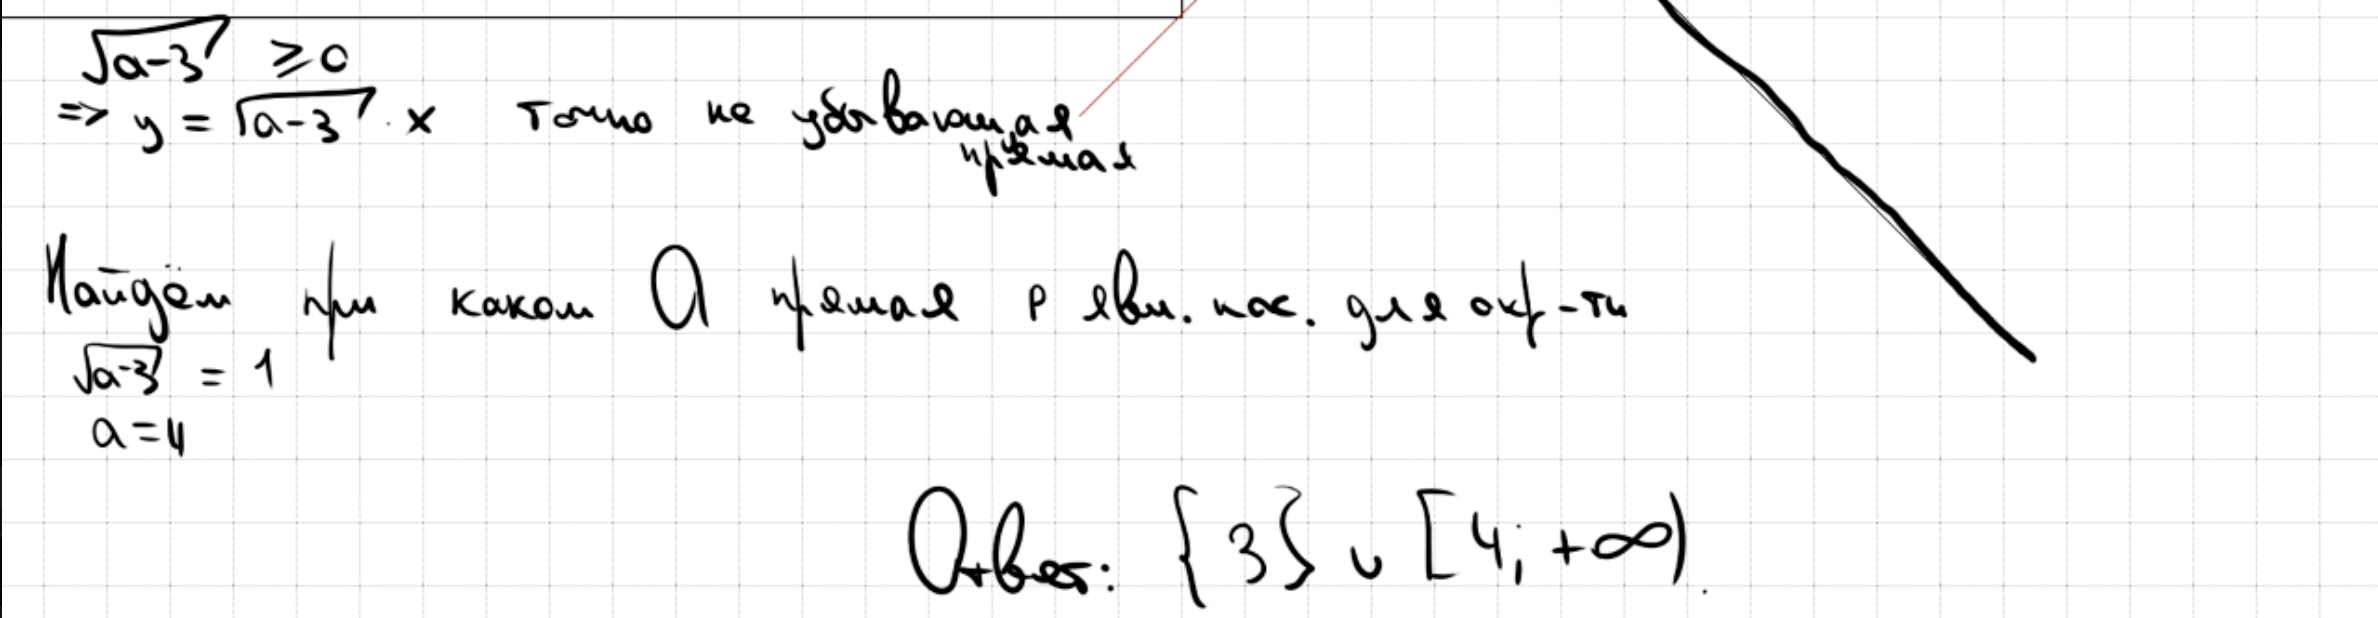 √(a-3) ≥ 0
=> y = √(a-3) · x точно не убывающая
прямая
Найдём при каком a прямая P явл. кас. для окр-ти
√(a-3) = 1
a=4
Ответ: {3} ∪ [4; +∞).